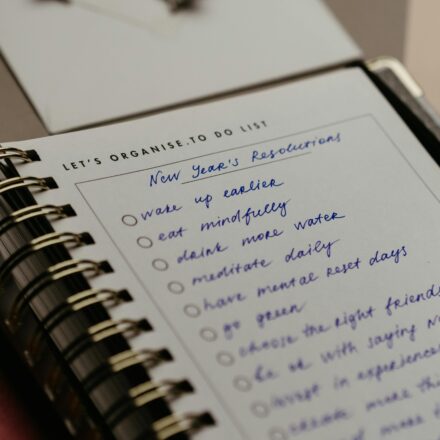 LET'S ORGANISE.TO DO LIST
New Year's Resolutions
wake up earlier
eat mindfully
drink more water
meditate daily
have mental reset days
go green
choose the right friends
be ok with saying
invest in experiences
create more
more